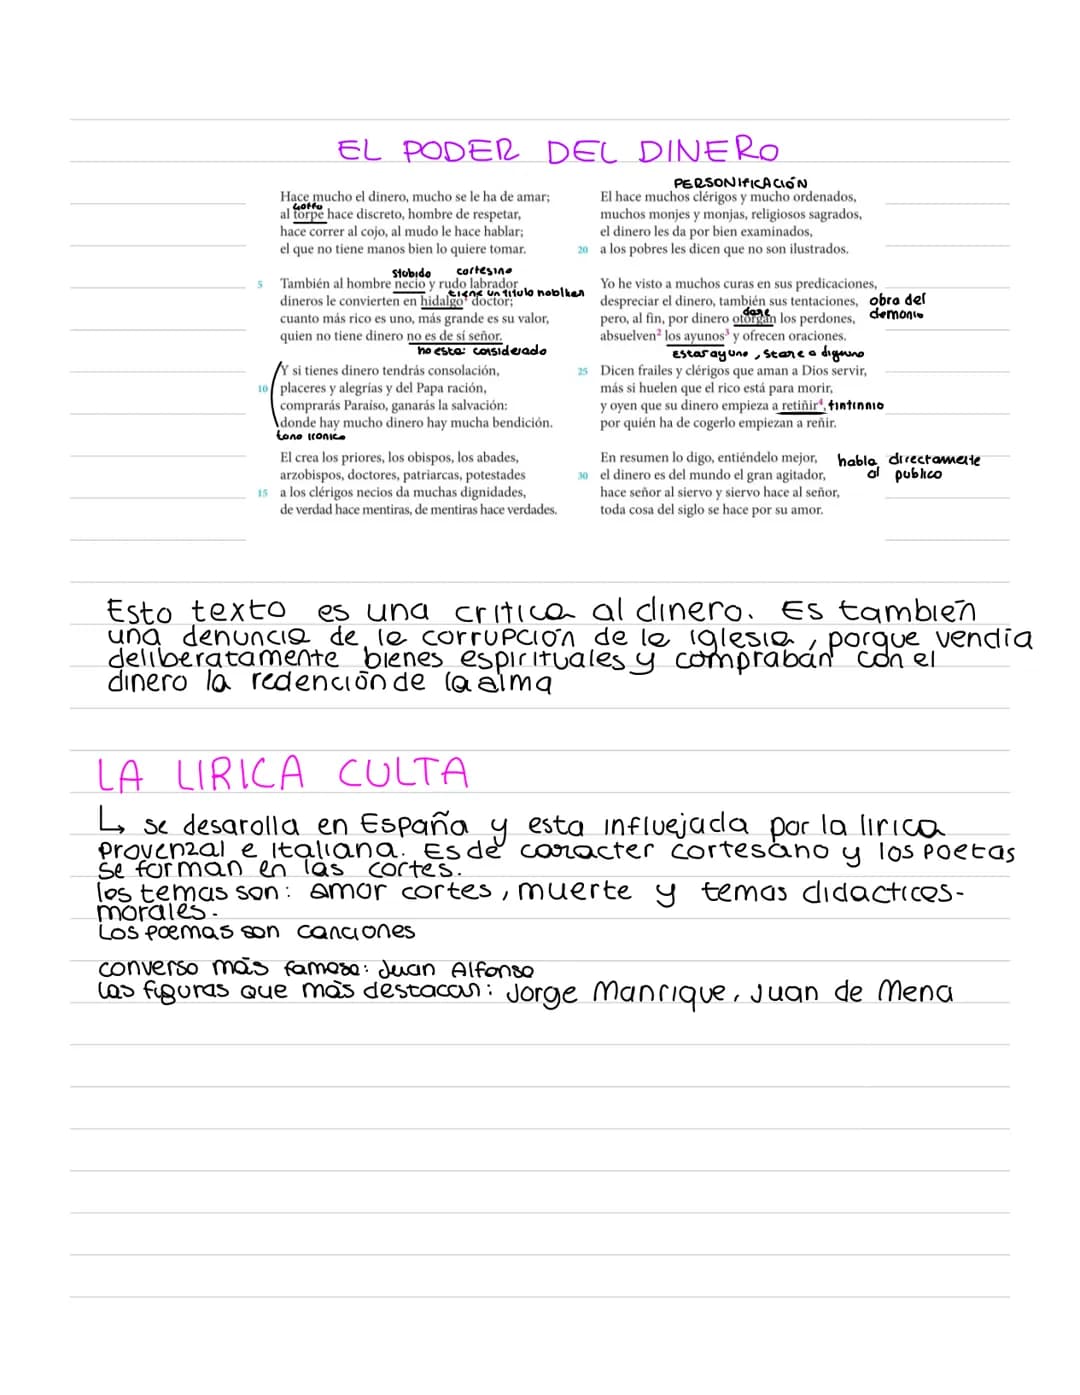 EL PODER DEL DINERO
Hace mucho el dinero, mucho se le ha de amar;
goffo
al torpe hace discreto, hombre de respetar,
hace correr al cojo, al mudo le hace hablar;
el que no tiene manos bien lo quiere tomar.
stubido cortesino
5 También al hombre necio y rudo labrador
tiene un titulo nobliare
dineros le convierten en hidalgo¹ doctor;
cuanto más rico es uno, más grande es su valor,
quien no tiene dinero no es de sí señor.
no esta: considerado
Y si tienes dinero tendrás consolación,
10 placeres y alegrías y del Papa ración,
comprarás Paraíso, ganarás la salvación:
donde hay mucho dinero hay mucha bendición.
tono ironico
El crea los priores, los obispos, los abades,
arzobispos, doctores, patriarcas, potestades
15 a los clérigos necios da muchas dignidades,
de verdad hace mentiras, de mentiras hace verdades.
PERSONIFICACIÓN
El hace muchos clérigos y mucho ordenados,
muchos monjes y monjas, religiosos sagrados,
el dinero les da por bien examinados,
20 a los pobres les dicen que no son ilustrados.
Yo he visto a muchos curas en sus predicaciones,
despreciar el dinero, también sus tentaciones, obra del
demonio
dare
pero, al fin, por dinero otorgan los perdones,
absuelven² los ayunos³ y ofrecen oraciones.
Estar ayuno, stare a digiuno
25 Dicen frailes y clérigos que aman a Dios servir,
más si huelen que el rico está para morir,
y oyen que su dinero empieza a retiñir⁴, tintinnio
por quién ha de cogerlo empiezan a reñir.
En resumen lo digo, entiéndelo mejor, habla directamente
al publico
30 el dinero es del mundo el gran agitador,
hace señor al siervo y siervo hace al señor,
toda cosa del siglo se hace por su amor.
Esto texto es una critica al dinero. Es también
una denuncia de le corrupción de le iglesia, porque vendia
deliberatamente bienes espirituales y compraban con el
dinero la redención de la alma
LA LIRICA CULTA
↳ se desarolla en España y esta influejada por la lirica
provenzal e italiana. Es de caracter cortesano y los poetas
se forman en las cortes.
los temas son: amor cortes, muerte y temas didacticos-
morales.
Los poemas son canciones
converso más famoso: Juan Alfonso
las figuras que más destacan: Jorge Manrique, Juan de Mena